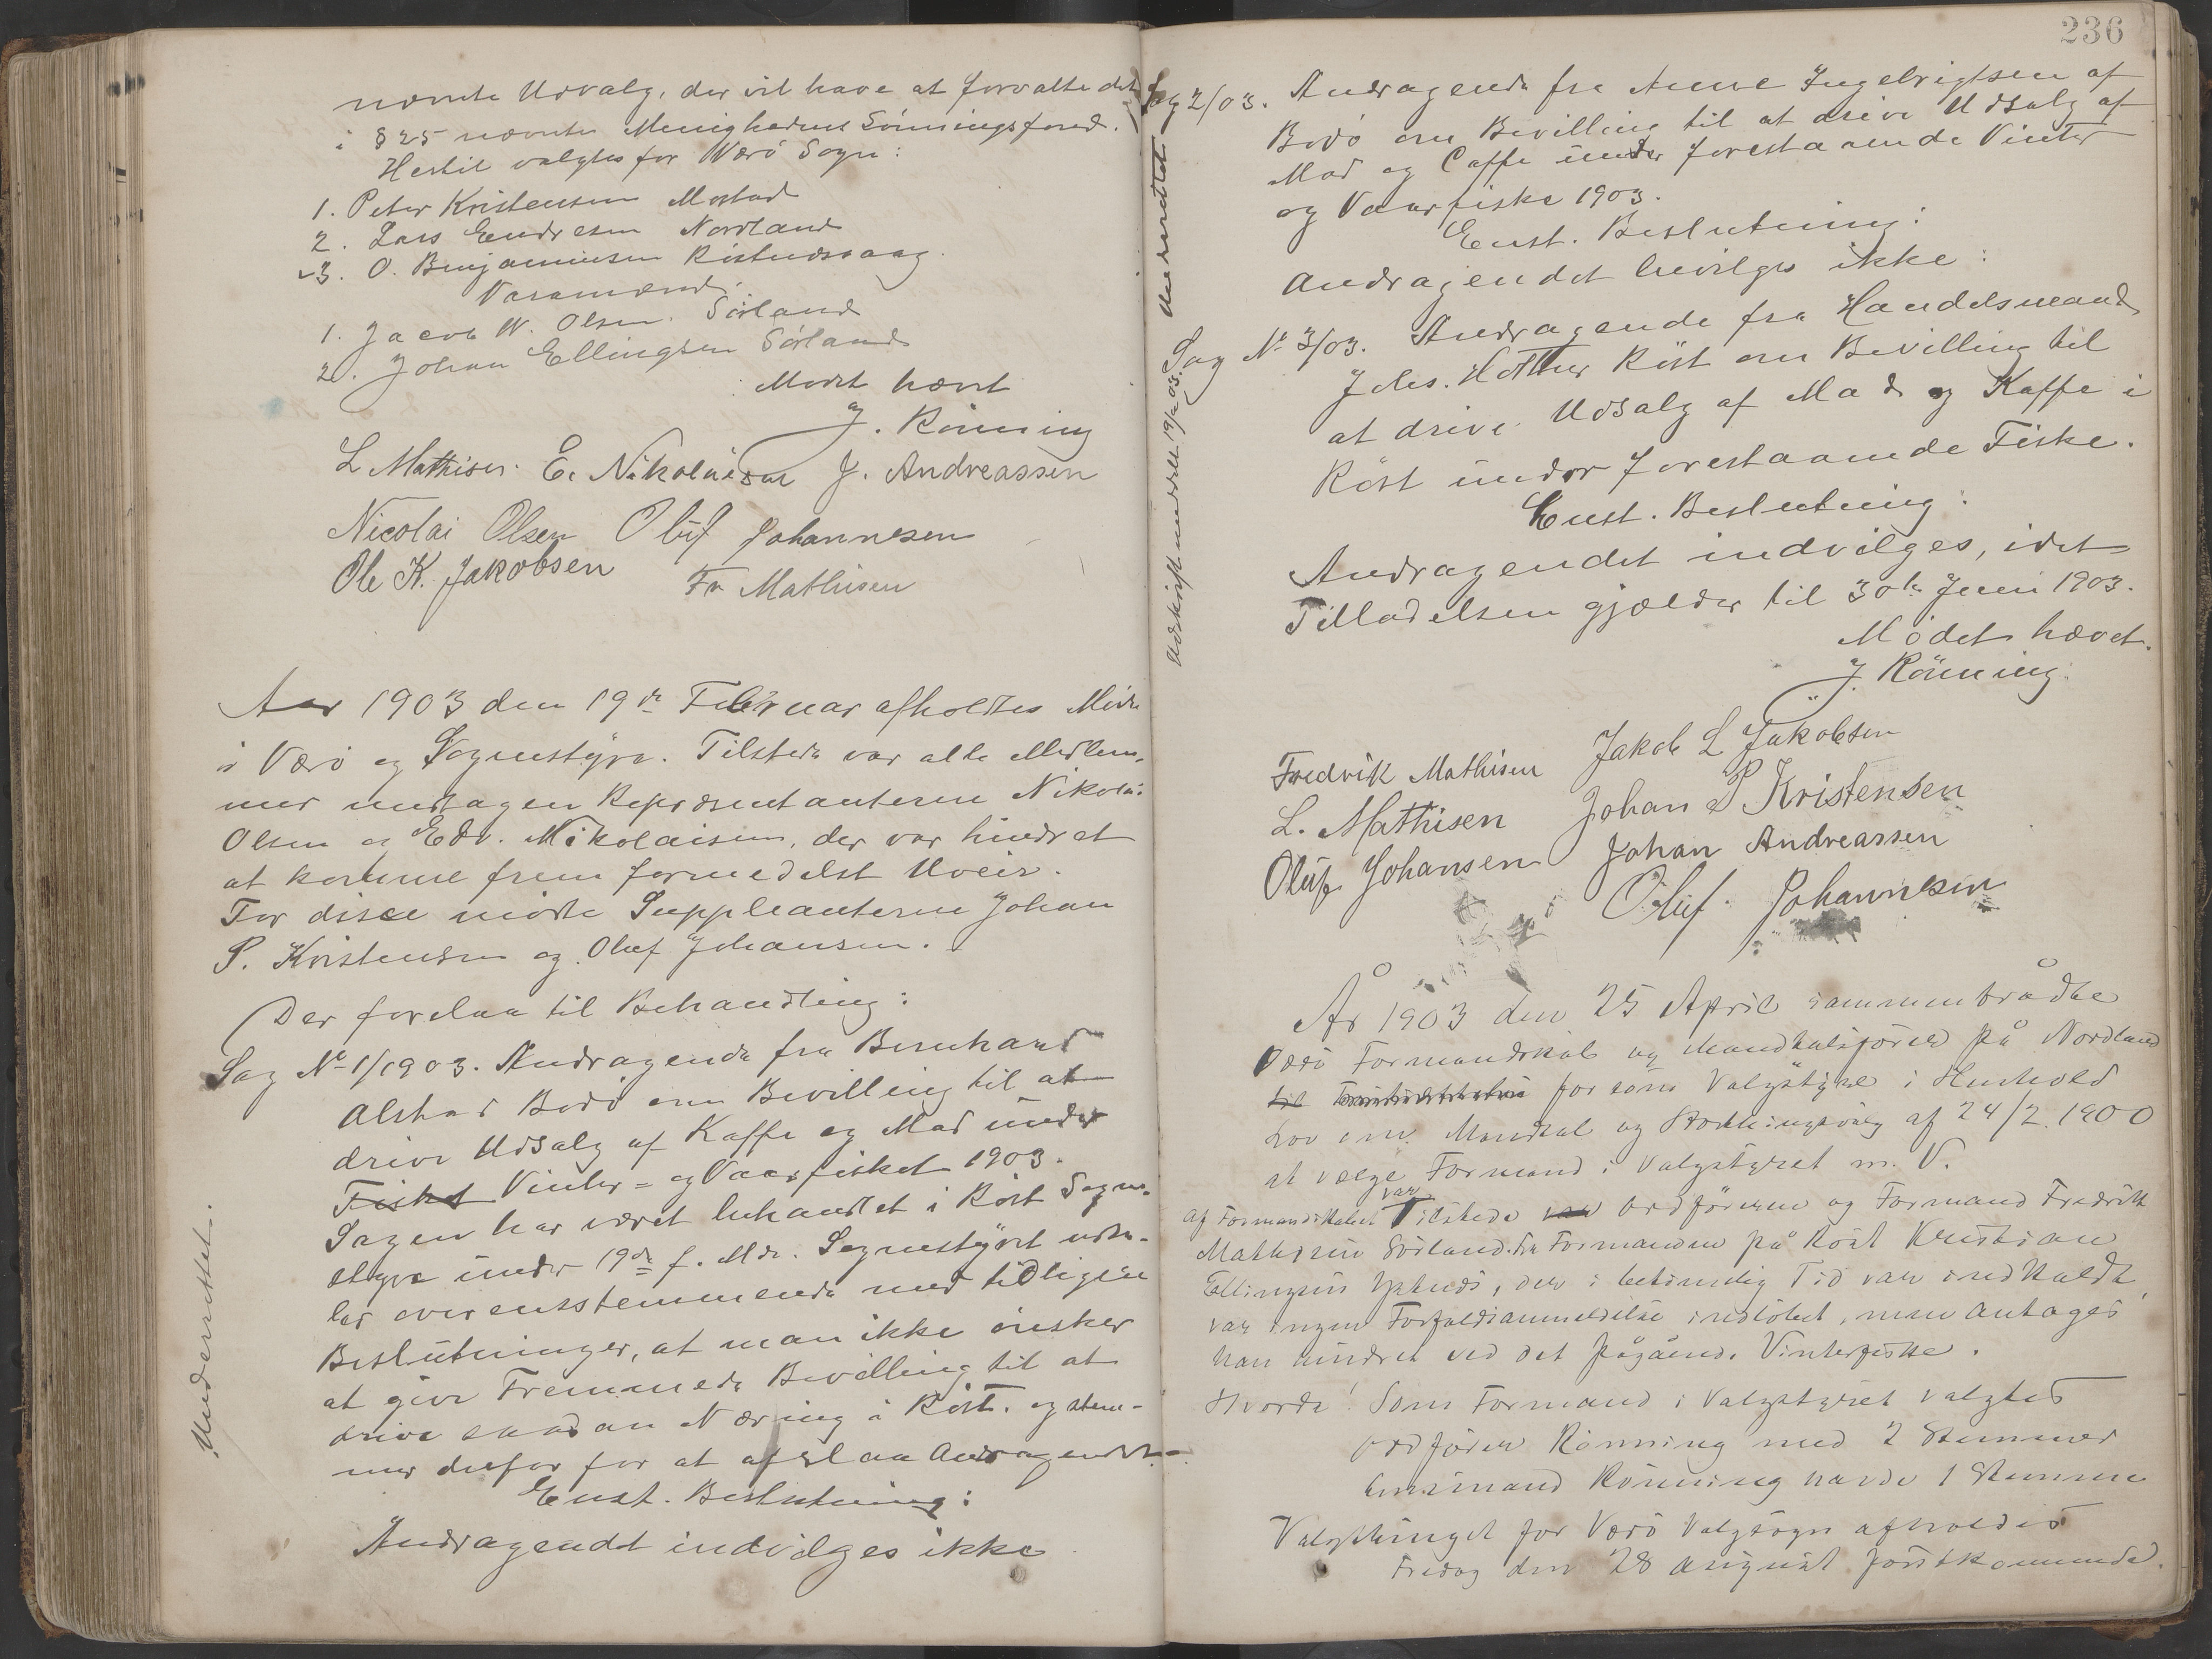 nævnte Udvalg, der vil have at forvalte det
i § 25 nævnte Menighedens Soningsfond.
Hertil valgtes for Værö Sogn:
1. Peter Kristensen Mostad
2. Lars Endresen Nordland
3. O. Benjaminsen Röstnesvaag.
Varamænd:
1. Jacob W. Olsen. Sörland
2. Johan Ellingsen Sörland
Mödet hævet
J. Rönning
L Mathisen. E. Nikolaisen J. Andreassen
Nicolai Olsen Oluf Johannesen
Ole K. Jakobsen Fr Mathisen
Aar 1903 den 19de Februar afholdtes Möde
i Værö og Sognestyre. Tilstede var alle Medlem-
mer undtagen Repræsentanterne Nikolai
Olsen og Edv. Nikolaisen, der var hindret
at komme frem formedelst Uveir.
For disse mödte Suppleanterne Johan
P. Kristensen og Oluf Johansen.
Der forelaa til Behandling:
Sag No 1/1903. Andragende fra Bernhard
Alstad Bodö om Bevilling til at
drive Udsalg af Kaffe og Mad under
Fisket Vinter- og Vaarfisket 1903.
Sagen har været behandlet i Röst Sogne-
styre under 19de f. Md. Sognestyret udta-
ler overensstemmende med tidligere
Beslutninger, at man ikke önsker
at give Fremmede Bevilling til at
drive saadan Næring i Röst. og stem-
mer derfor for at afslaa Andragendet.
Enst. Beslutning:
Andragendet indvilges ikke
Underrettet.
236
Sag 2/03. Andragende fra Anne Ingebrigtsen af
Bodö om Bevilling til at drive Udsalg af
Mad og Caffe under forestaaende Vinter
og Vaarfiske 1903.
Enst. Beslutning:
Andragendet bevilges ikke:
Underrettet
Sag No 3/03. Andragende fra Handelsmand
Johs. Hother Röst om Bevilling til
at drive Udsalg af Mad og Kaffe i
Röst under forestaaende Fiske.
Enst. Beslutning:
Andragendet indvilges, idet
Tilladelsen gjælder til 30te Juni 1903.
Udskrift meddelt 19/2 03.
Mödet hævet.
J. Rönning.
Fredrik Mathisen Jakob L Jakobsen
L. Mathisen Johan P Kristensen
Oluf Johansen Johan Andreassen
Oluf Johannesen
År 1903 den 25 April sammentrådte
Værö Formandskab og Mandtalsförer på Nordland
til for som Valgstyre i Henhold
Lov om Mandtal og Storthingsvalg af 24/2 1900
at vælge Formand i Valgstyret m. V.
Af Formandskabet var Tilstede var Ordföreren og Formand Fredrik
Mathisen Sörland. Fra Formanden på Röst Kristian
Ellingsen Ystnes, der i betimelig Tid var indkaldt,
var ingen Forfaldsanmeldelse indlöbet, men antages
han hindret ved det pågående Vinterfiske.
Hvorda! Som Formand i Valgstyret valgtes
Ordförer Rönning med 2 Stemmer
Lensmand Rönning havde 1 Stemme
Valgthinget for Værö Valgsogn afholdes
Fredag den 28 august förstkommende.